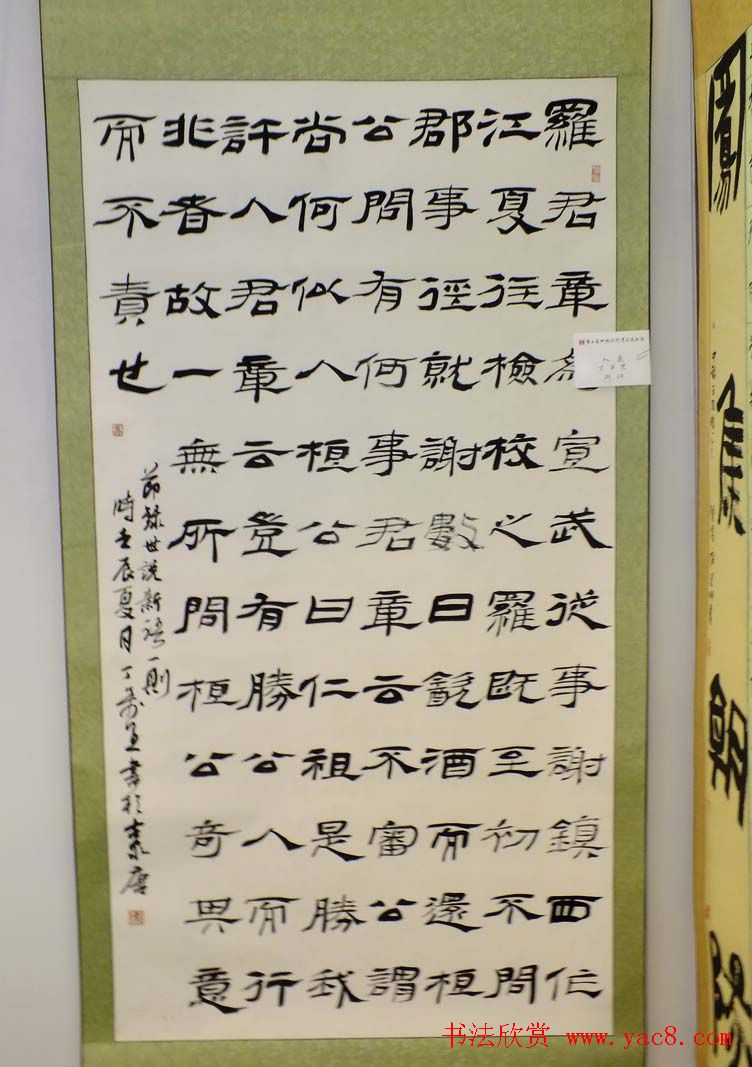 羅君章為宣武從事謝鎮西作
江夏往檢校之羅既至初不問
郡事徑就謝數日飲酒而還桓
公問有何事君章云不審公謂
尚何似人桓公曰仁祖是勝我
許人君章云豈有勝公人而行
非者故一無所問桓公奇其意
而不責也
節錄世說新語一則
時壬辰夏月丁
書於
鳳集朝
书法欣赏 www.yac8.com